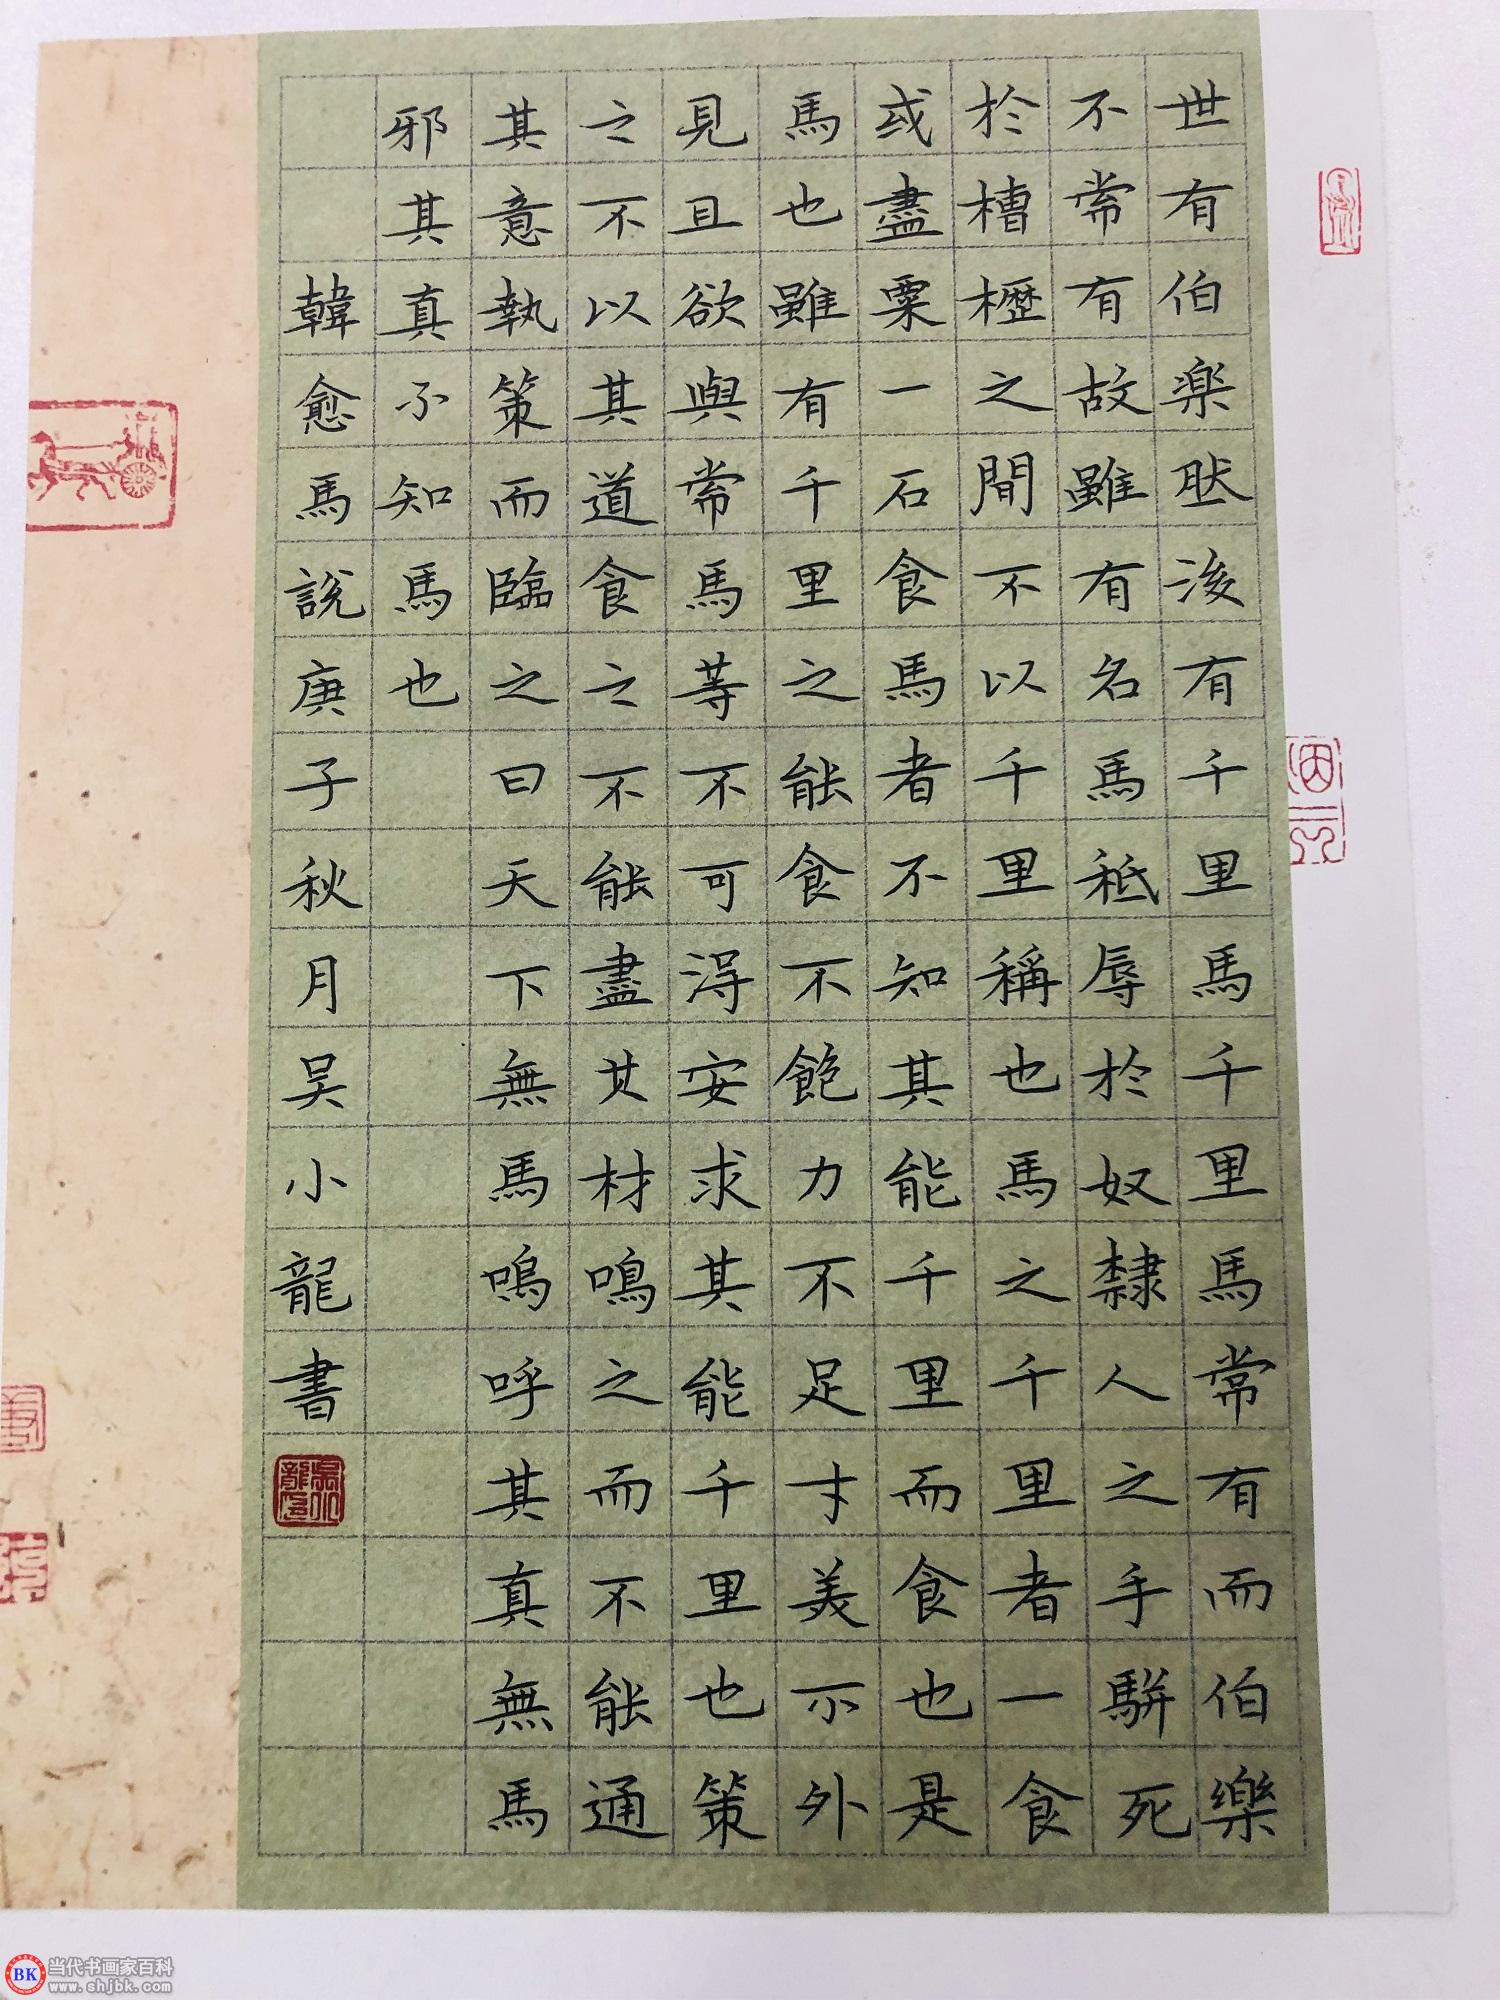 世有伯楽肰後有千里馬千里馬常有而伯樂
不常有故雖有名馬秪辱於奴隸人之手駢死
於槽櫪之間不以千里稱也馬之千里者一食
或盡粟一石食馬者不知其能千里而食也是
馬也雖有千里之能食不飽力不足才美不外
見且欲與常馬等不可得安求其能千里也策
之不以其道食之不能盡其材鳴之而不能通
其意執策而臨之曰天下無馬嗚呼其真無馬
邪其真不知馬也
韓愈馬說庚子秋月吴小龍書
BK 当代书画家百科
www.shjbk.com